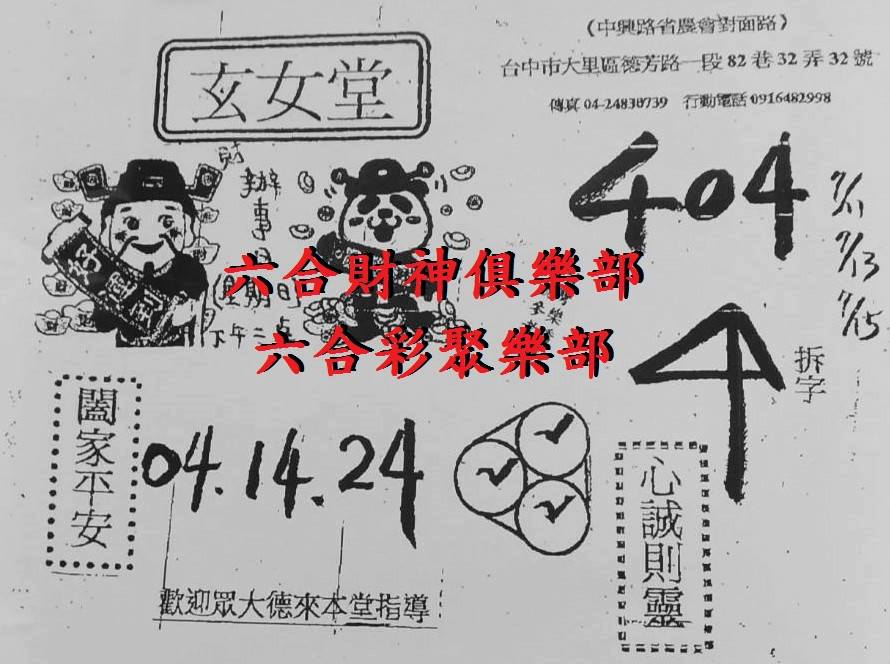 (中興路省農會對面路)
台中市大里區德芳路一段 82 巷 32 弄 32 號
傳真 04-24830739 行動電話 0916482998
玄女堂
財
辦事日
星期日
下午二点
404
7/11
7/13
7/15
六合財神俱樂部
六合彩聚樂部
拆字
闔家平安
04.14.24
心誠則靈
歡迎眾大德來本堂指導